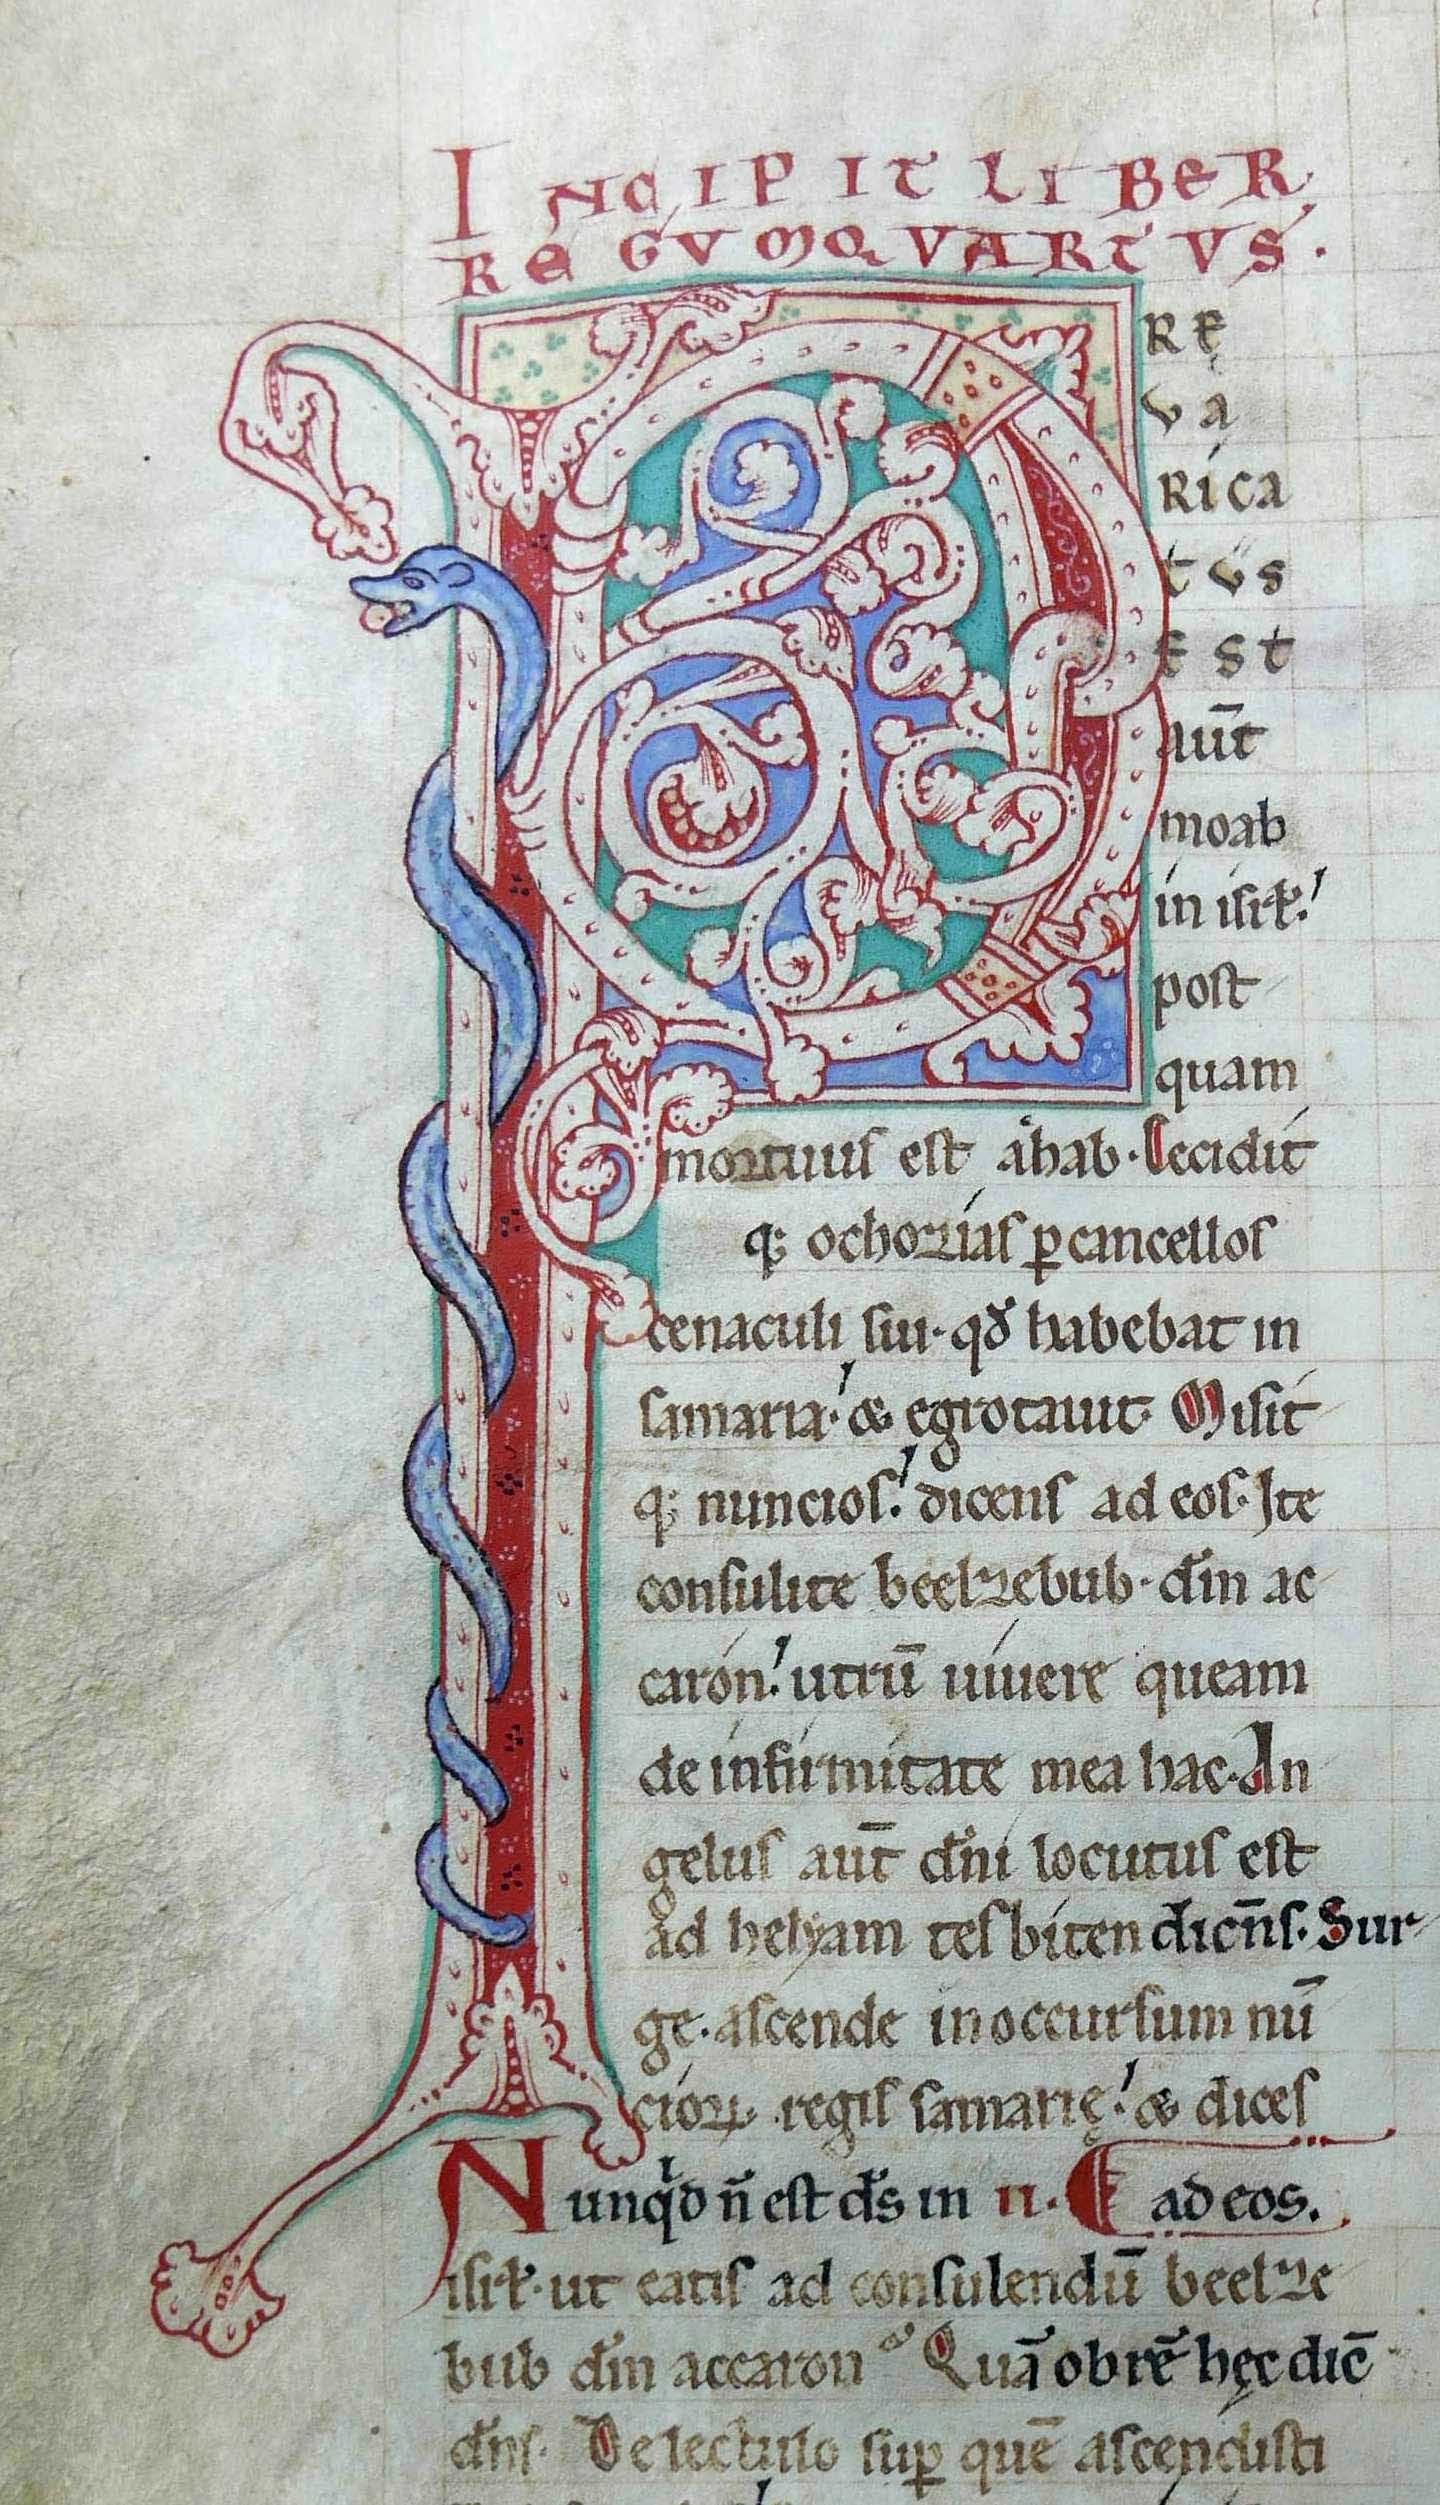 INCIPIT LIBER
REGUM QVARTVS.
PRE
VA
RICA
TVS
EST
aut̄
moab
in isrl̄.
post
quam
mortuus est ahab. Cecidit
q; ochozias ꝑ cancellos
cenaculi sui. qđ habebat in
samaria. & egrotauit. Misit
q; nuncios. dicens ad eos. Ite
consulite beelzebub. dm̄ ac
caron. utrū uiuere queam
de infirmitate mea hac. An
gelus aut̄ dn̄i locutus est
ad helyam tesbiten dicn̄s. Sur-
ge. ascende in occursum nū
cioꝝ regis samarię. & dices
Nunqd n̄ est ds̄ in II. ad eos.
isrl̄. ut eatis ad consulendū beelze
bub dm̄ accaron Quā ob rē hęc dic̄
dn̄s. De lectulo suꝑ quē ascendisti